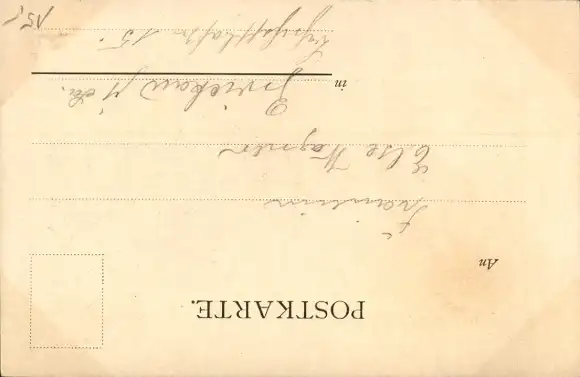 POSTKARTE.
An
Fräulein
Else Wagner
in Zwickau i/ Sa.
15.
15,